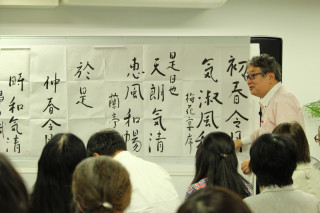 初春令月
気淑風和
梅花歌序
是日也
天朗気清
恵風和暢
蘭亭
於是
仲春令月
時和気清